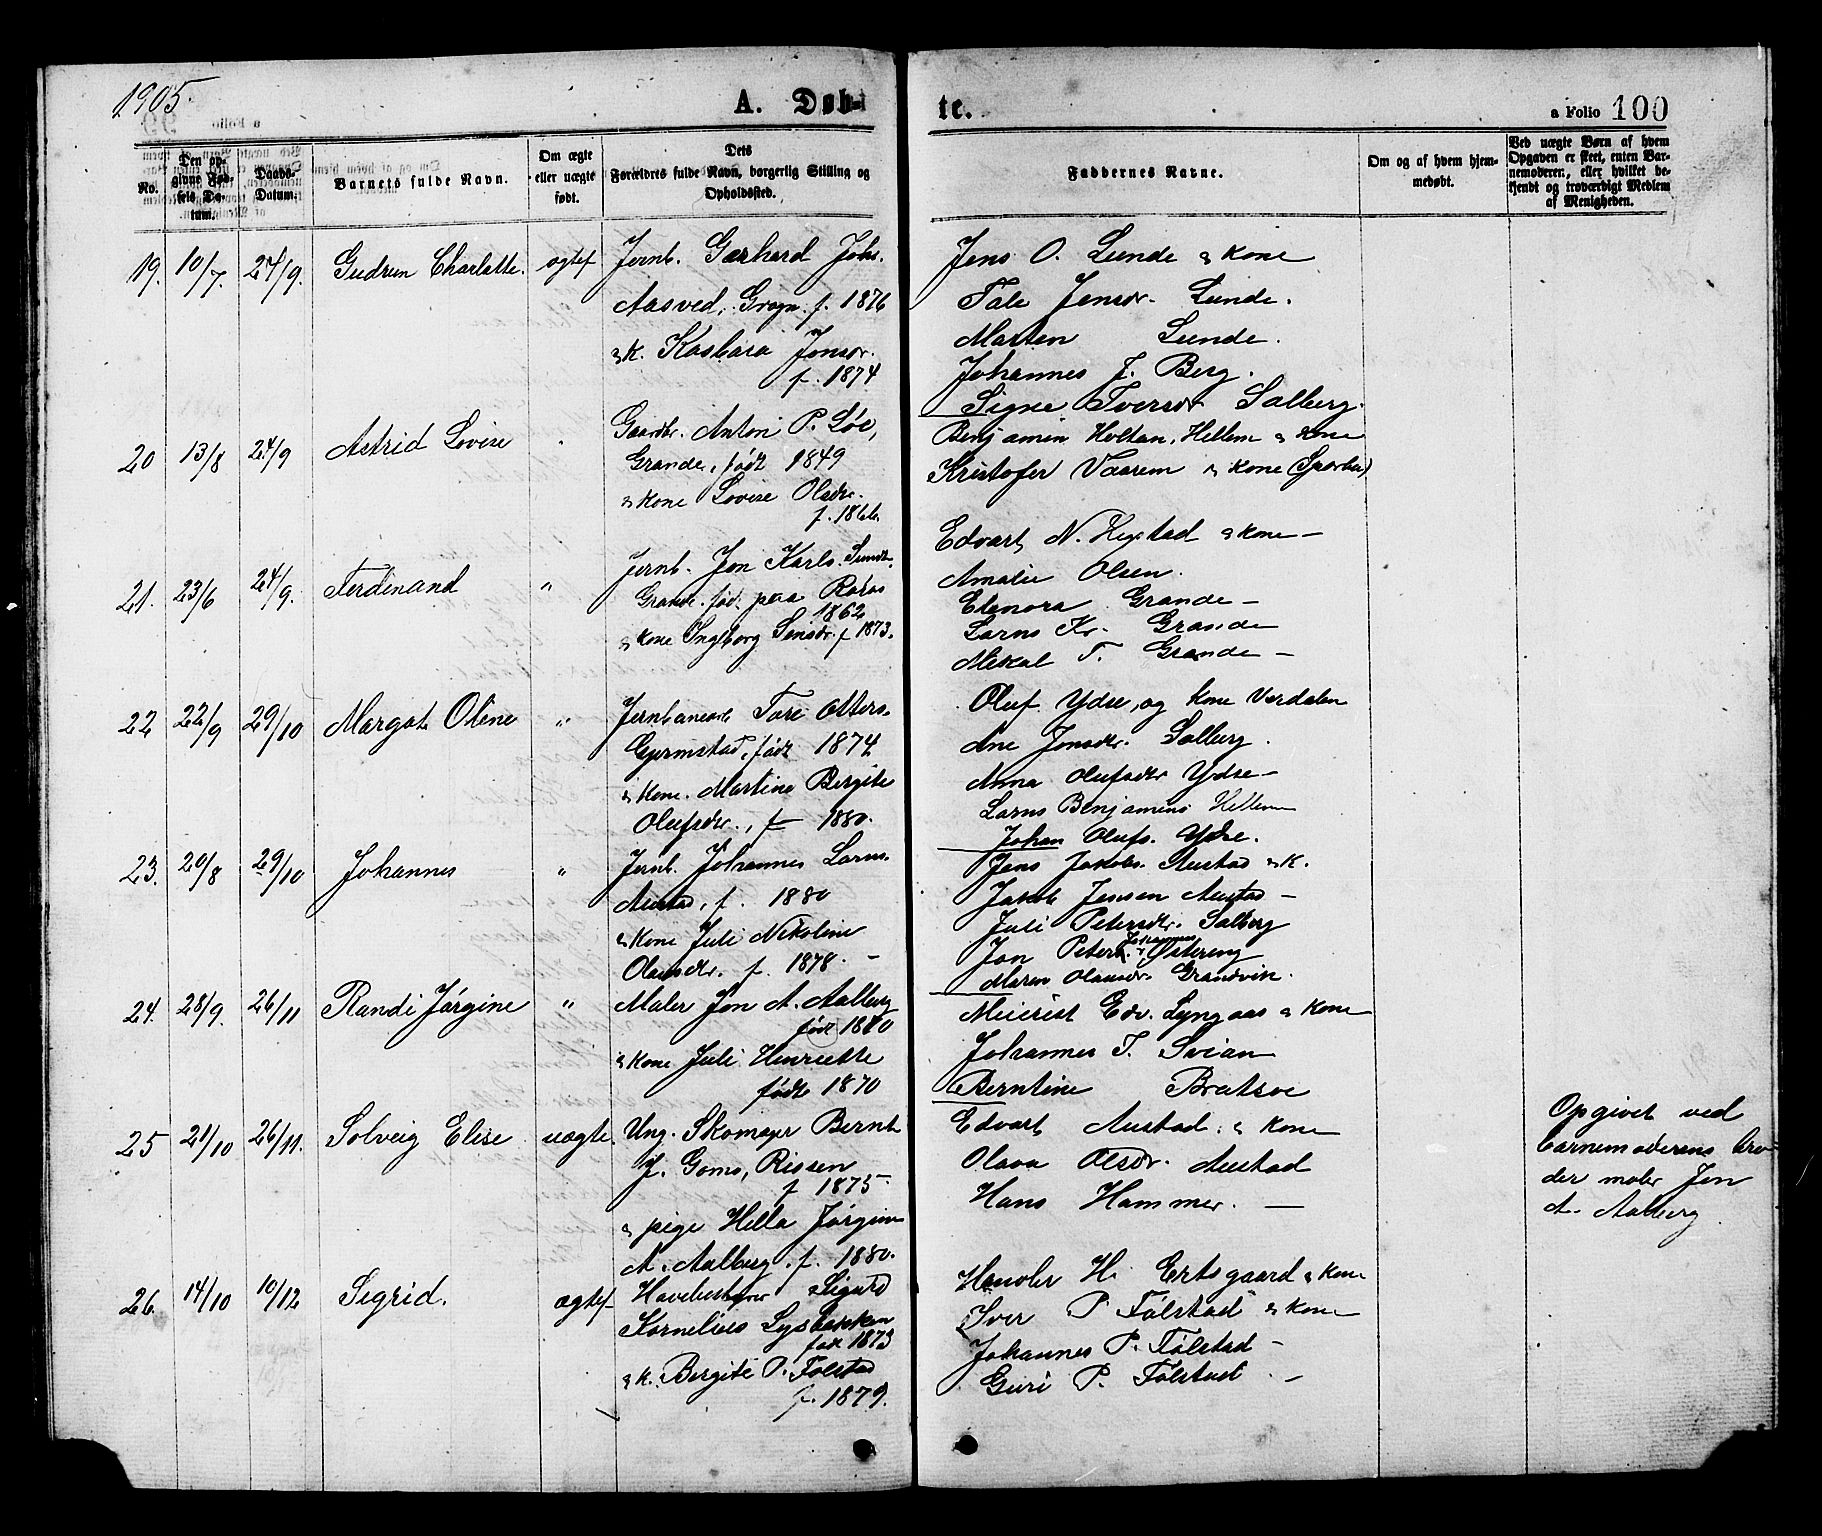 1905.
A. Døb-
te.
a Folio 100
No.
Den op-
givne Fød-
sels Da-
tum.
Daabs-
Datum.
Barnets fulde Navn.
Om ægte
eller uægte
født.
Dets
Forældres fulde Navn, borgerlig Stilling og
Opholdssted.
Faddernes Navne.
Om og af hvem hjem-
medøbt.
Ved uægte Børn af hvem
Opgaven er skeet, enten Bar-
nemoderen, eller hvilket be-
kjendt og troværdigt Medlem
af Menigheden.
19. 10/7. 24/9. Gudrun Charlotte. ægtef
Jernb. Gerhard Johs.
Aasved, f. 1876
& K. Jensdr.
f. 1874
Jens O. Lunde & Kone
Tale Jensdr. Lunde.
Marten Lunde.
Johannes J. Berg.
Signe Iversdr Salberg.
20 13/8 24/9 Astrid Lovise "
Gaardbr. Anton P. Løe,
Grande, født 1849
& Kone Lovise Olsdr.
f. 1866.
Benjamin Holtan, Hellem & Kone
Kristofer Vaarem & Kone (Sparbu)
21. 23/6 24/9. Ferdinand "
Jernb. Jon Karls. Sundt.
Grande. fød. paa Røros
1862
& Kone Ingborg f 1873.
Edvart N. & Kone —
Amalie Olsen.
Elenora Grande —
Larns Kr. Grande
Mikal T. Grande —
22 22/9 29/10 Margot Oline "
Tore Otters.
Gjermstad, født 1874
& Kone. Martine Bergite
Olufsdr., f — 1880.
Oluf Ydse, og Kone Verdalen
Ane Jonsdr. Salberg.
Anna Olufsdtr Ydse —
Larns Benjamins Hellem
Johan Olufs. Ydse.
23. 20/8 29/10 Johannes "
Jernb. Johannes Larns.
Austad, f. 1880
& Kone Juli Nikoline
Olausdr. f. 1878. —
Jens Jakobs. Austad & K.
Jakob Jensen Austad —
Juli Petersdr. Salberg
Johannes
Jon Peter. Østereng
Maren Olausdr. Grandvik.
24. 28/9. 26/11 Randi Jørgine "
Maler Jon A. Aalberg
født 1880
& Kone Juli Henriette
født 1870
Meierist Edv. Lyngaas & Kone
Johannes T. Svian
Berntine Bratsve
25 21/10 26/11. Solveig Elise. uægte.
Ung. Skomager Bernt
J. Goms, Rissen
f 1875 —
& pige Hella Jørgine
A. Aalberg. f. 1880.
Edvart Austad. & Kone
Olava Olsdr. Austad
Hans Hammer. —
Opgivet ved
barnemoderens bro-
der maler Jon
A. Aalberg.
26. 14/10 10/12 Sigrid. ægtef
Sigurd
Kornelius Lysbakken
født 1873
& K. Bergite P. Følstad
f. 1879.
H. Ertsgaard & Kone
Iver P. Følstad & Kone
Johannes P. Følstad —
Guri P. Følstad. —